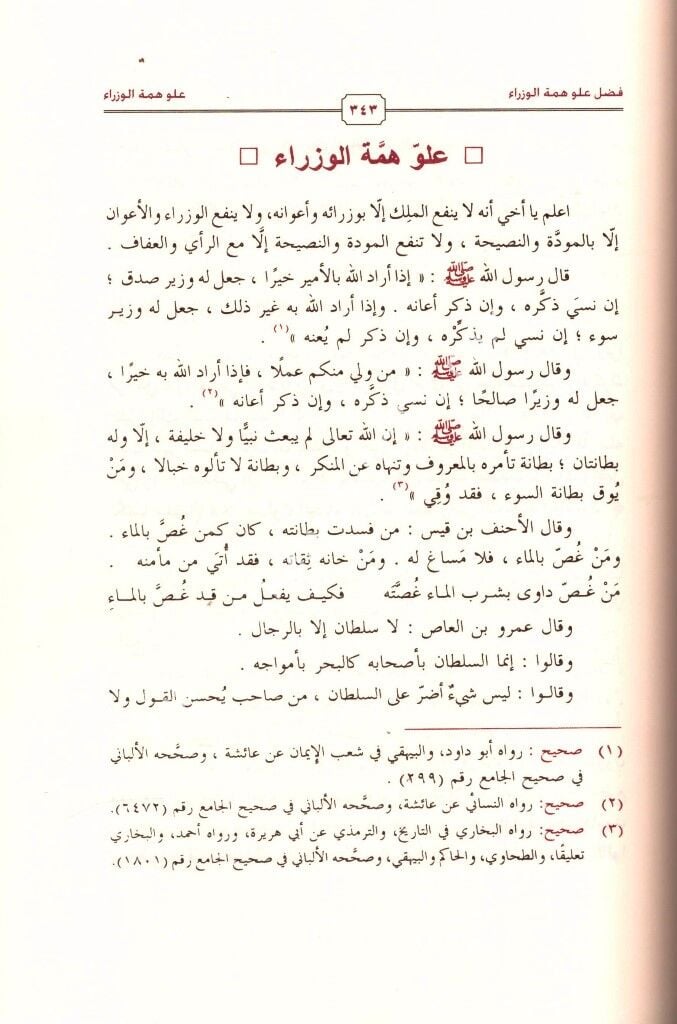 فضل علو همة الوزراء
٣٤٣
علو همة الوزراء
□ علوّ همَّة الوزراء □
اعلم يا أخي أنه لا ينفع الملِك إلّا بوزرائه وأعوانه، ولا ينفع الوزراء والأعوان
إلّا بالمودَّة والنصيحة ، ولا تنفع المودة والنصيحة إلَّا مع الرأي والعفاف .
قال رسول الله ﷺ : « إذا أراد الله بالأمير خيرًا ، جعل له وزير صدق ؛
إن نسيَ ذكَّره ، وإن ذكر أعانه . وإذا أراد الله به غير ذلك ، جعل له وزيـر
سوء ؛ إن نسي لم يذكِّرْه ، وإن ذكر لم يُعنه »(١) .
وقال رسول الله ﷺ : « من ولي منكم عملًا ، فإذا أراد الله به خيرًا ،
جعل له وزيرًا صالحًا ؛ إن نسي ذكَّره ، وإن ذكر أعانه »(٢) .
وقال رسول الله ﷺ : « إن الله تعالى لم يبعث نبيًّا ولا خليفة ، إلّا وله
بطانتان ؛ بطانة تأمره بالمعروف وتنهاه عن المنكر ، وبطانة لا تألوه خبالا ، ومَنْ
يُوق بطانة السوء ، فقد وُقِي »(٣) .
وقال الأحنف بن قيس : من فسدت بطانته ، كان كمن غُصَّ بالماء .
ومَنْ غُصّ بالماء ، فلا مَساغ له . ومَنْ خانه ثِقاته ، فقد أُتَي من مأمنه .
مَنْ غُـصّ داوى بشرب المـاء غُصَّتَه فكيـف يفعـلُ مـن قـد غُـصَّ بالمـاءِ
وقال عمرو بن العاص : لا سلطان إلا بالرجال .
وقالوا : إنما السلطان بأصحابه كالبحر بأمواجه .
وقالـوا : ليس شيءٌ أضرّ على السلطان ، من صاحب يُحسن القـول ولا
(١) صحيح : رواه أبو داود، والبيهقي في شعب الإيمان عن عائشة ، وصحَّحه الألباني
في صحيح الجامع رقم (٢٩٩) .
(٢) صحيح: رواه النسائي عن عائشة، وصحَّحه الألباني في صحيح الجامع رقم (٦٤٧٢).
(٣) صحيح: رواه البخاري في التاريخ، والترمذي عن أبي هريرة، ورواه أحمد، والبخاري
تعليقًا، والطحاوي، والحاكم والبيهقي، وصحَّحه الألباني في صحيح الجامع رقم (١٨٠١).